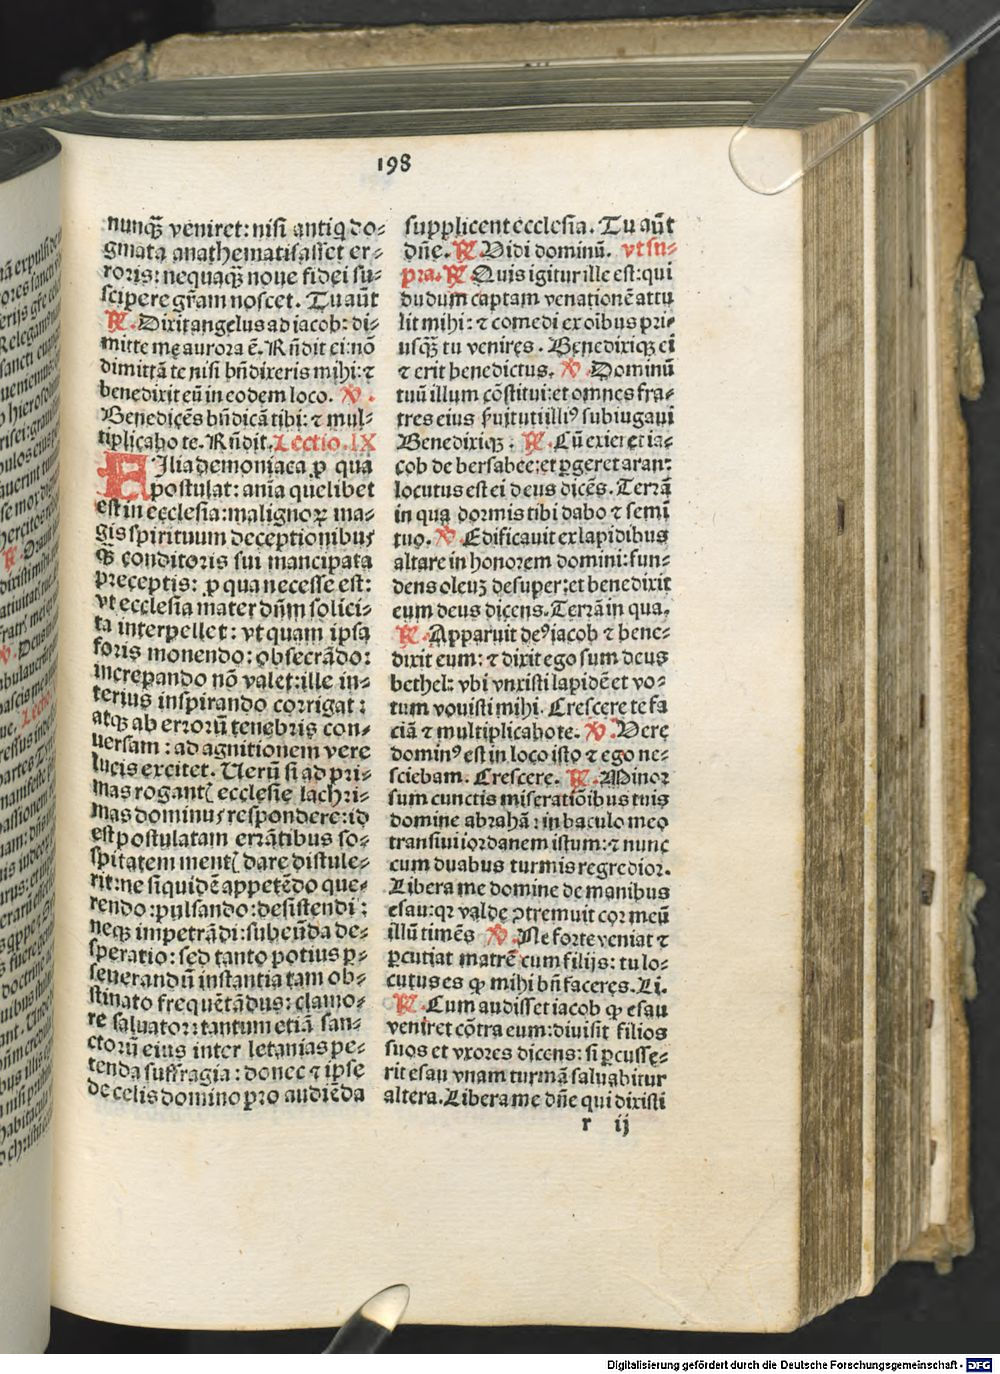 198
nunqꝫ veniret: nisi antiq do⸗
gmata anathematisasset er⸗
roris: nequaqꝫ noue fidei su⸗
scipere gr̃am noscet. Tu aũt
℟. Dixit angelus ad iacob: di⸗
mitte me aurora ẽ. Rñdit ei: nõ
dimittã te nisi bñdixeris mihi: ⁊
benedixit eũ in eodem loco. ℣.
Benedicẽs bñdicã tibi: ⁊ mul⸗
tiplicabo te. Rñdit. Lectio. IX
FIlia demoniaca ꝓ qua
postulat: aĩa quelibet
est in ecclesia: malignoꝝ ma⸗
gis spirituum deceptionibus
qꝫ conditoris sui mancipata
preceptis: ꝓ qua necesse est:
vt ecclesia mater dñm solici⸗
ta interpellet: vt quam ipsa
foris monendo: obsecrãdo:
increpando nõ valet: ille in⸗
terius inspirando corrigat:
atqꝫ ab errorũ tenebris con⸗
uersam: ad agnitionem vere
lucis excitet. Uerũ si ad pri⸗
mas rogantꝭ ecclesie lachri⸗
mas dominus respondere: id
est postulatam errãtibus so⸗
spitatem mentꝭ dare distule⸗
rit: ne siquidẽ appetẽdo que⸗
rendo: pulsando: desistendi:
neqꝫ impetrãdi: subeũda de⸗
speratio: sed tanto potius ꝑ⸗
seuerandũ instantia tam ob⸗
stinato frequẽtãdus: clamo⸗
re saluator: tantum etiã san⸗
ctorũ eius inter letanias pe⸗
tenda suffragia: donec ⁊ ipse
de celis domino pro audiẽda
supplicent ecclesia. Tu aũt
dñe. ℟. Vidi dominũ. vt su⸗
pra. ℟. Quis igitur ille est: qui
dudum captam venationẽ attu
lit mihi: ⁊ comedi ex oĩbus pri⸗
usqꝫ tu venires. Benedixiqꝫ ei
⁊ erit benedictus. ℣. Dominũ
tuũ illum cõstitui: et omnes fra⸗
tres eius ẜuituti illiꝰ subiugaui
Benedixiqꝫ. ℟. Cũ exiet et ia⸗
cob de bersabee: et ꝑgeret aran:
locutus est ei deus dicẽs. Terrã
in qua dormis tibi dabo ⁊ semĩ
tuo. ℣. Edificauit ex lapidibus
altare in honorem domini: fun⸗
dens oleuꝫ desuper: et benedixit
eum deus dicens. Terrã in qua.
℟. Apparuit deꝰ iacob ⁊ bene⸗
dixit eum: ⁊ dixit ego sum deus
bethel: vbi vnxisti lapidẽ et vo⸗
tum vouisti mihi. Crescere te fa
ciã ⁊ multiplicabo te. ℣. Vere
dominꝰ est in loco isto ⁊ ego ne⸗
sciebam. Crescere. ℟. Minor
sum cunctis miseratiõibus tuis
domine abrahã: in baculo meo
transiui iordanem istum: ⁊ nunc
cum duabus turmis regredior.
Libera me domine de manibus
esau: qꝛ valde ꝯtremuit cor meũ
illũ timẽs ℣. Ne forte veniat ⁊
ꝑcutiat matrẽ cum filijs: tu lo⸗
cutus es ꝙ mihi bñ faceres. Li.
℟. Cum audisset iacob ꝙ esau
veniret cõtra eum: diuisit filios
suos et vxores dicens: si ꝑcusse⸗
rit esau vnam turmã saluabitur
altera. Libera me dñe qui dixisti
r ij
Digitalisierung gefördert durch die Deutsche Forschungsgemeinschaft - DFG